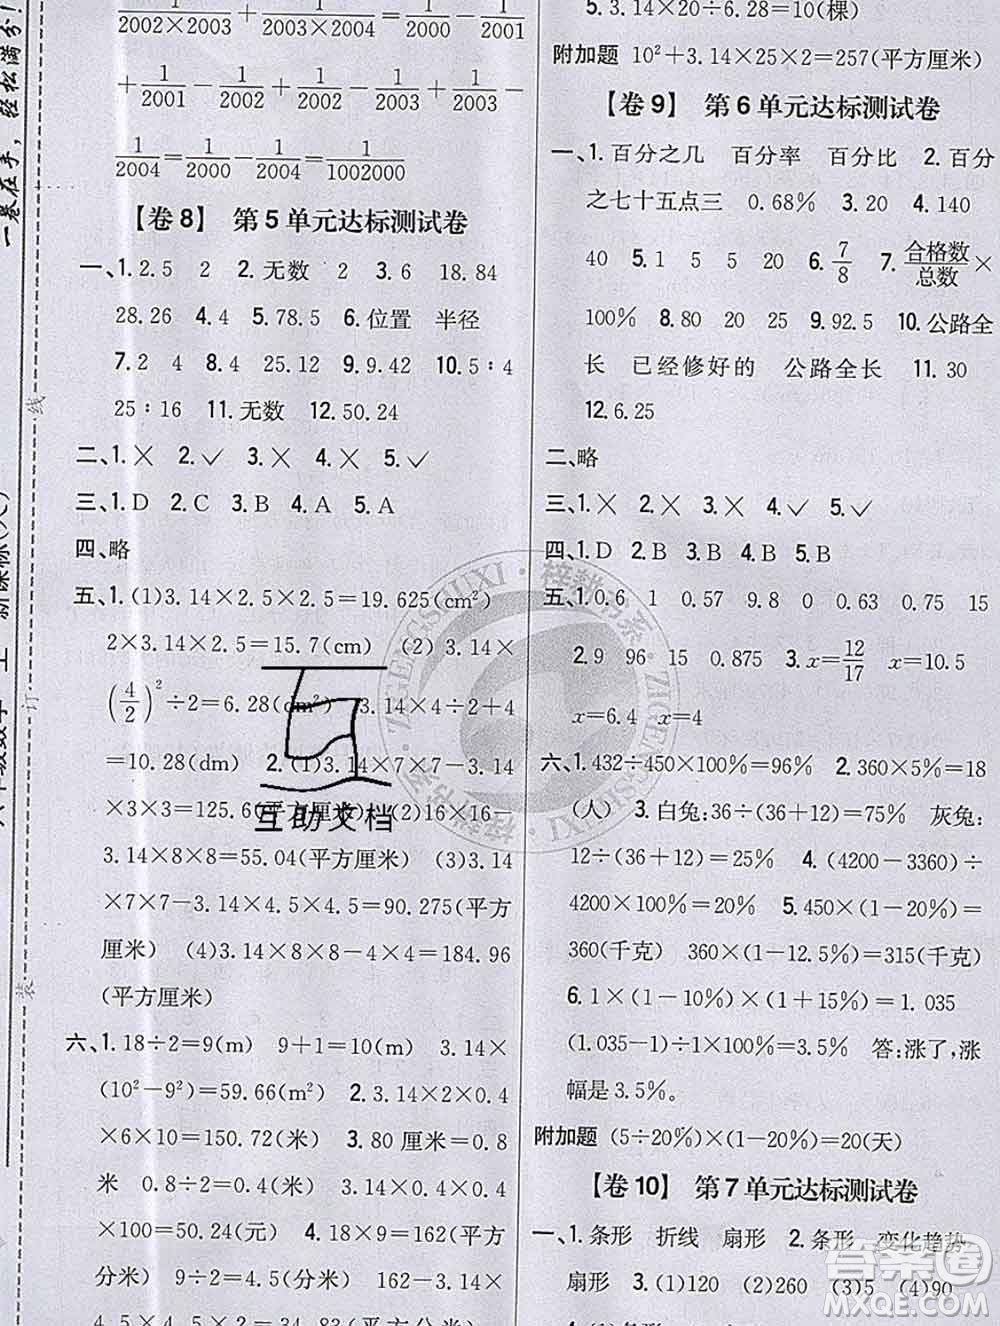 一卷在手，轻松满分！
线
订
装
1/(2002×2003) + 1/(2003×2004) = 1/2000 − 1/2001
+ 1/2001 − 1/2002 + 1/2002 − 1/2003 + 1/2003 −
1/2004 = 1/2000 − 1/2004 = 1/1002000
【卷8】 第5单元达标测试卷
一、1.2.5 2 2.无数 2 3.6 18.84
28.26 4.4 5.78.5 6.位置 半径
7.2 4 8.4 25.12 9.50.24 10.5∶4
25∶16 11.无数 12.50.24
二、1.× 2.✓ 3.× 4.× 5.✓
三、1.D 2.C 3.B 4.A 5.A
四、略
五、1.(1)3.14×2.5×2.5=19.625(cm²)
2×3.14×2.5=15.7(cm) (2)3.14×
(4/2)²÷2=6.28(dm²) 3.14×4÷2+4
=10.28(dm) 2.(1)3.14×7×7−3.14
×3×3=125.6(平方厘米) (2)16×16−
3.14×8×8=55.04(平方厘米) (3)3.14
×7×7−3.14×4.5×4.5=90.275(平方
厘米) (4)3.14×8×8−4×4=184.96
(平方厘米)
六、1.18÷2=9(m) 9+1=10(m) 3.14×
(10²−9²)=59.66(m²) 2.3.14×2×0.4
×6×10=150.72(米) 3.80厘米=0.8
米 0.8÷2=0.4(米) 3.14×0.4×0.4
×100=50.24(元) 4.18×9=162(平方
分米) 9÷2=4.5(分米) 162−3.14×
4.5×4.5×2=34.83(平方分米)
5.3.14×20÷6.28=10(棵)
附加题 10²+3.14×25×2=257(平方厘米)
【卷9】 第6单元达标测试卷
一、1.百分之几 百分率 百分比 2.百分
之七十五点三 0.68% 3.20 4.140
40 5.1 5 5 20 6.7/8 7.合格数/总数×
100% 8.80 20 25 9.92.5 10.公路全
长 已经修好的 公路全长 11.30
12.6.25
二、略
三、1.× 2.× 3.× 4.✓ 5.✓
四、1.D 2.B 3.D 4.B 5.B
五、1.0.6 1 0.57 9.8 0 0.63 0.75 15
2.9 96 15 0.875 3.x=12/17 x=10.5
x=6.4 x=4
六、1.432÷450×100%=96% 2.360×5%=18
(人) 3.白兔:36÷(36+12)=75% 灰兔:
12÷(36+12)=25% 4.(4200−3360)÷
4200×100%=20% 5.450×(1−20%)=
360(千克) 360×(1−12.5%)=315(千克)
6.1×(1−10%)×(1+15%)=1.035
(1.035−1)÷1=3.5% 答:涨了,涨
幅是3.5%。
附加题 (5÷20%)×(1−20%)=20(天)
【卷10】 第7单元达标测试卷
一、1.条形 折线 扇形 2.条形 变化趋势
扇形 3.(1)120 (2)260 (3)5 (4)90
互助文档
ZIGENGSHUXI·梓耕书系·ZIGENGSHUXI·梓耕书系
答案圈
MXQE.COM